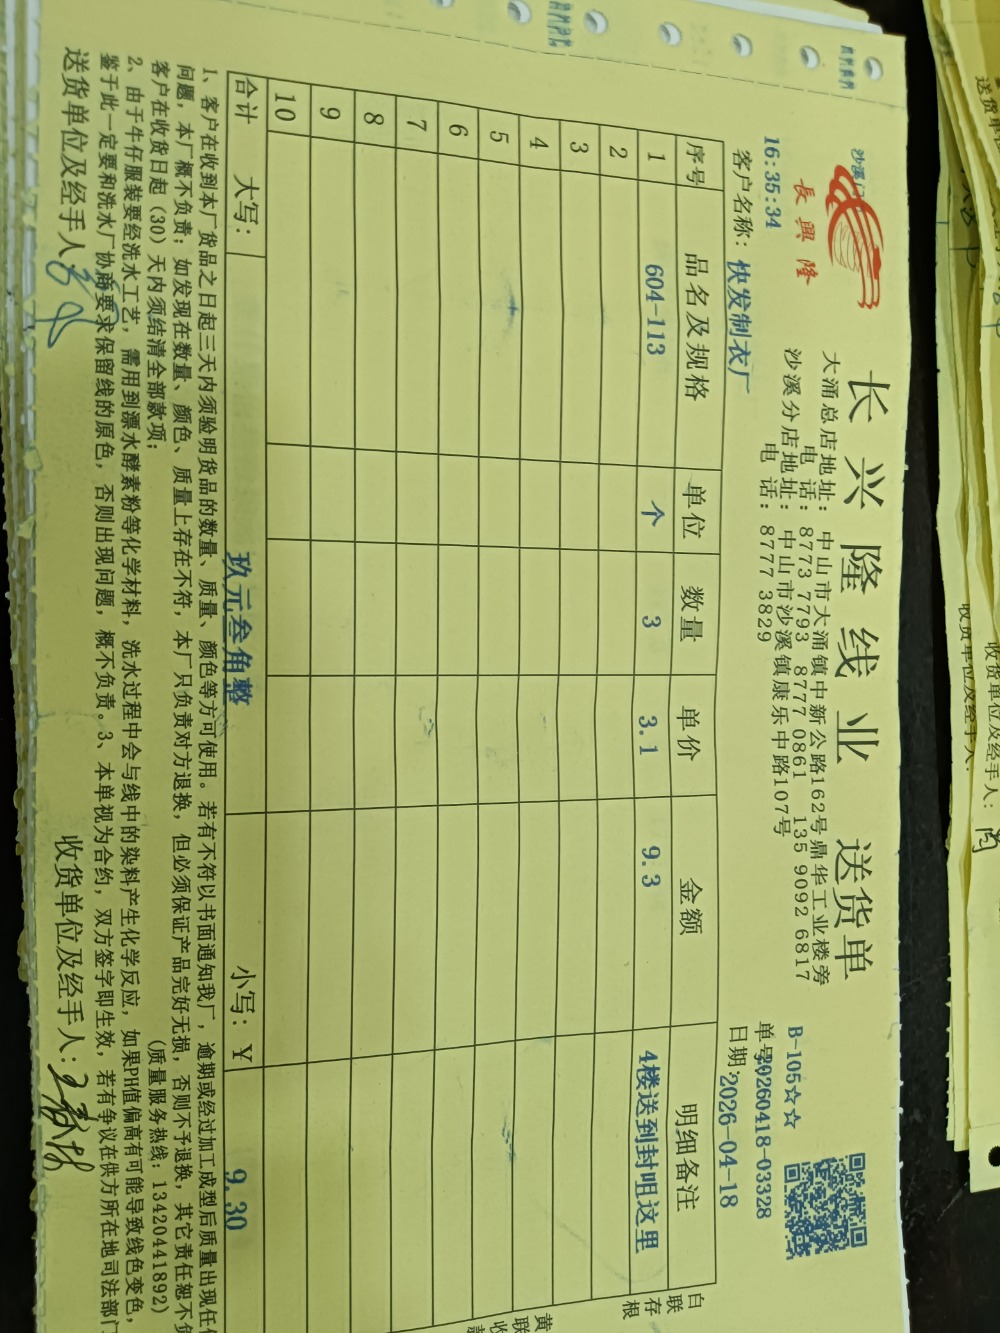 长兴隆线业 送货单
長興隆
沙溪门
16:35:34
大涌总店地址：中山市大涌镇中新公路162号鼎华工业楼旁
电 话：8773 7793 8777 0861 135 9092 6817
沙溪分店地址：中山市沙溪镇康乐中路107号
电 话：8777 3829
B-105☆☆
单号20260418-03328
日期：2026-04-18
客户名称：快发制衣厂
序号 品名及规格 单位 数量 单价 金额 明细备注
1 604-113 个 3 3.1 9.3 4楼送到封咀这里
2
3
4
5
6
7
8
9
10
合计 大写： 玖元叁角整 小写：¥ 9.30
白联存根
黄联收
1、客户在收到本厂货品之日起三天内须验明货品的数量、质量、颜色等方可使用。若有不符以书面通知我厂，逾期或经过加工成型后质量出现任
问题，本厂概不负责；如发现在数量、颜色、质量上存在不符，本厂只负责对方退换，但必须保证产品完好无损，否则不予退换，其它责任恕不
客户在收货日起（30）天内须结清全部款项； (质量服务热线：13420441892)
2、由于牛仔服装要经洗水工艺，需用到漂水酵素粉等化学材料，洗水过程中会与线中的染料产生化学反应，如果PH值偏高有可能导致线色变色，
鉴于此一定要和洗水厂协商要求保留线的原色，否则出现问题，概不负责。3、本单视为合约，双方签字即生效，若有争议在供方所在地司法部门
送货单位及经手人： 收货单位及经手人：
送货单
收货单位及经手人：
收货单位及经手人：